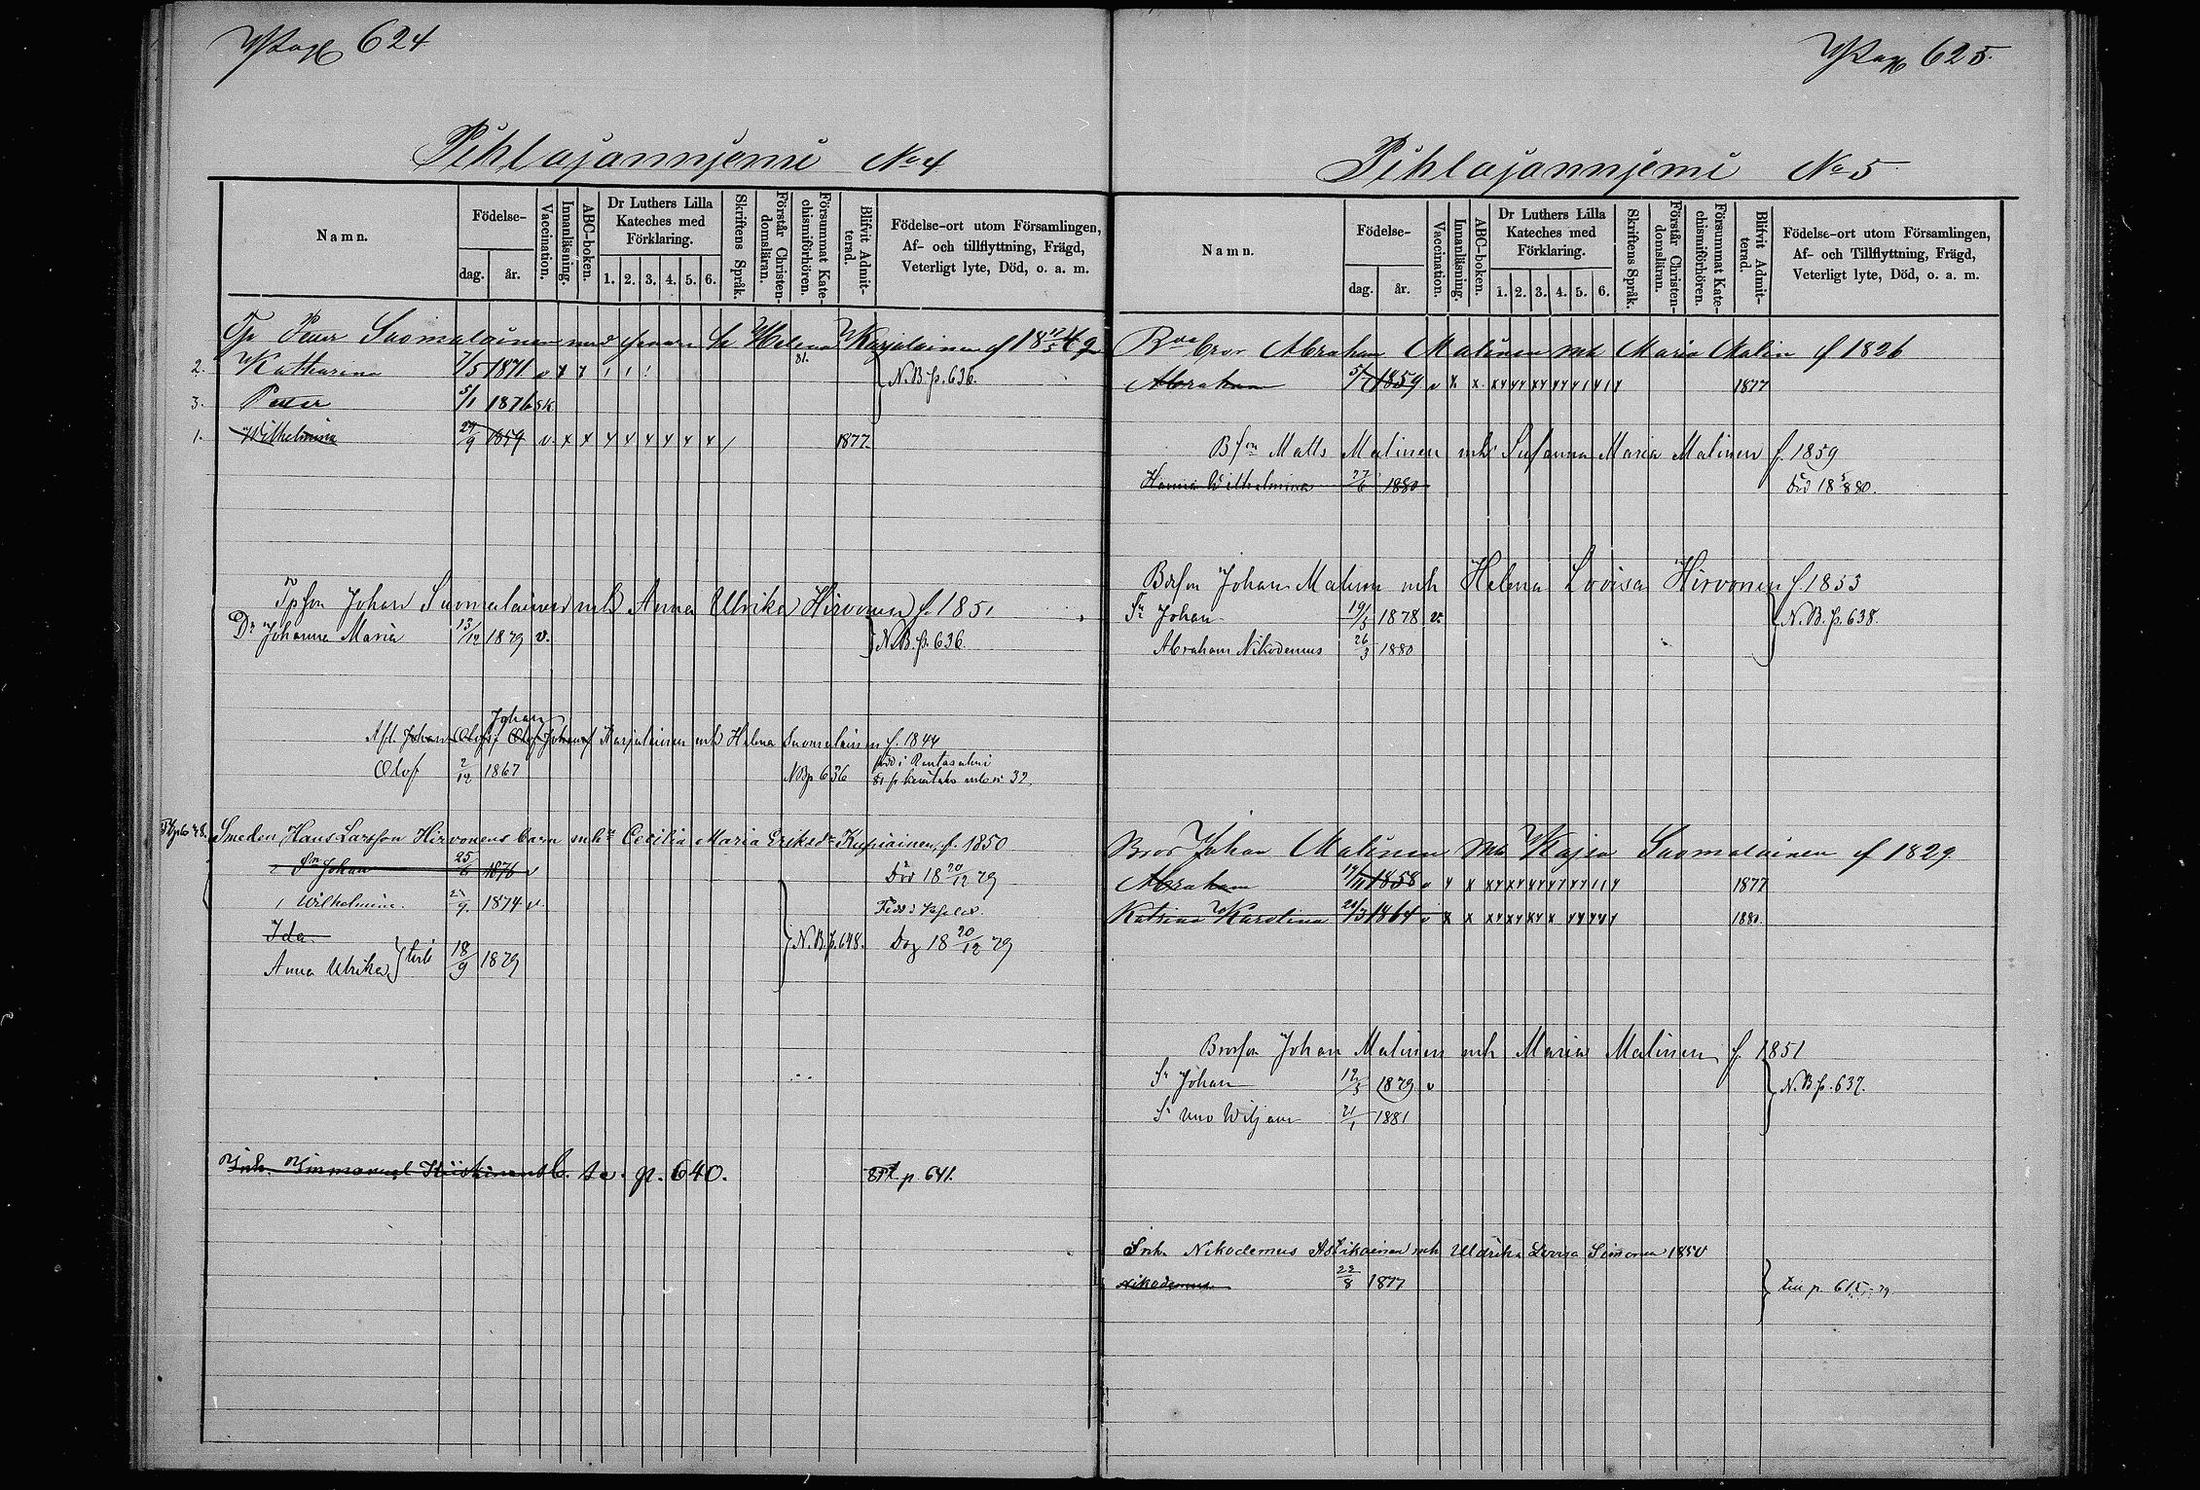 Pag 624
Pihlajannjemi No 4
Namn.
Födelse-
dag.
år.
Vaccination.
Innanläsning.
ABC-boken.
Dr Luthers Lilla Kateches med Förklaring.
1. 2. 3. 4. 5. 6.
Skriftens Språk.
Förstår Christendomsläran.
Försummat Katechismiförhören.
Blifvit Admitterad.
Födelse-ort utom Församlingen,
Af- och tillflyttning, Frägd,
Veterligt lyte, Död, o. a. m.
Peter Suomalainen med Helena Karjalainen f
2. Katharina 7/5 1871 v x x 1 1 1 N.B. p. 636.
3. Petter 5/1 1876
1. Wilhelmina 29/9 1859 v. x x x x x x x x / 1877
Johan Suomalainens mh Anna Ulrika Hirvonen f. 1851
Dr Johanna Maria 13/12 1879 v. N.B. p. 636
Johan
Karjalainen mh Helena Suomalainen f. 1844
Olof 2/12 1867 NB p 636
Smeden Hans Larsson Hirvonens barn mh Cecilia Maria Eriksdr Kupiainen, f. 1850
2 Sn Johan 25/6 1876 v Död 18 20/12 79
1 Wilhelmina. 9. 1874 v.
Ida N.B. p. 648. Dog 18 20/12 79
Anna Ulrika 18/9 1879
Inh. Immanuel se p. 640. p 641.
Pag 625.
Pihlajannjemi No 5
Namn.
Födelse-
dag.
år.
Vaccination.
Innanläsning.
ABC-boken.
Dr Luthers Lilla Kateches med Förklaring.
1. 2. 3. 4. 5. 6.
Skriftens Språk.
Förstår Christendomsläran.
Försummat Katechismiförhören.
Blifvit Admitterad.
Födelse-ort utom Församlingen,
Af- och Tillflyttning, Frägd,
Veterligt lyte, Död, o. a. m.
bror Abraham Malinen mh Maria Malin f 1826
Abraham 1859 v x x 1877
Matts Malinen mh Susanna Maria Malinen f. 1859
Hanna Wilhelmina 27/6 1880 Död
Johan Malinen mh Helena Lovisa Hirvonen f 1853
Sn Johan 19/5 1878 v. N.B. p. 638.
Abraham Nikodemus 26/3 1880
Bror Johan Malinen mh Kajsa Suomalainen f 1829
Abraham 1858 v x x 1877
Katrina Karolina 1864 v x x 1880.
Brorson Johan Malinen mh Maria Malinen f. 1851
Sn Johan 1879 v N.B. p. 637.
Sn Uno Wiljam 21/1 1881
Inh. Nikodemus mh Uldrika Lovisa 1850
Nikodemus 22/8 1877